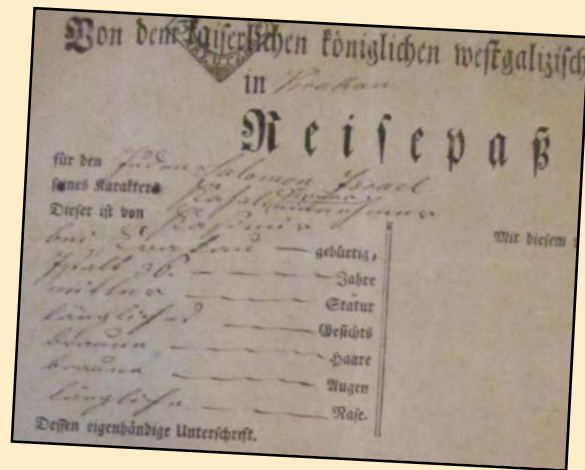 Von dem kaiserlichen königlichen westgalizisch
in Krakau
Reisepaß
für den Juden Salomon Israel
seines Karakters
Dieser ist von Kasimir
bei Krakau — gebürtig,
alt 36. — Jahre
mitler — Statur
längliches — Gesichts
braune — Haare
braune — Augen
längliche — Nase.
Dessen eigenhändige Unterschrift.
Mit diesem